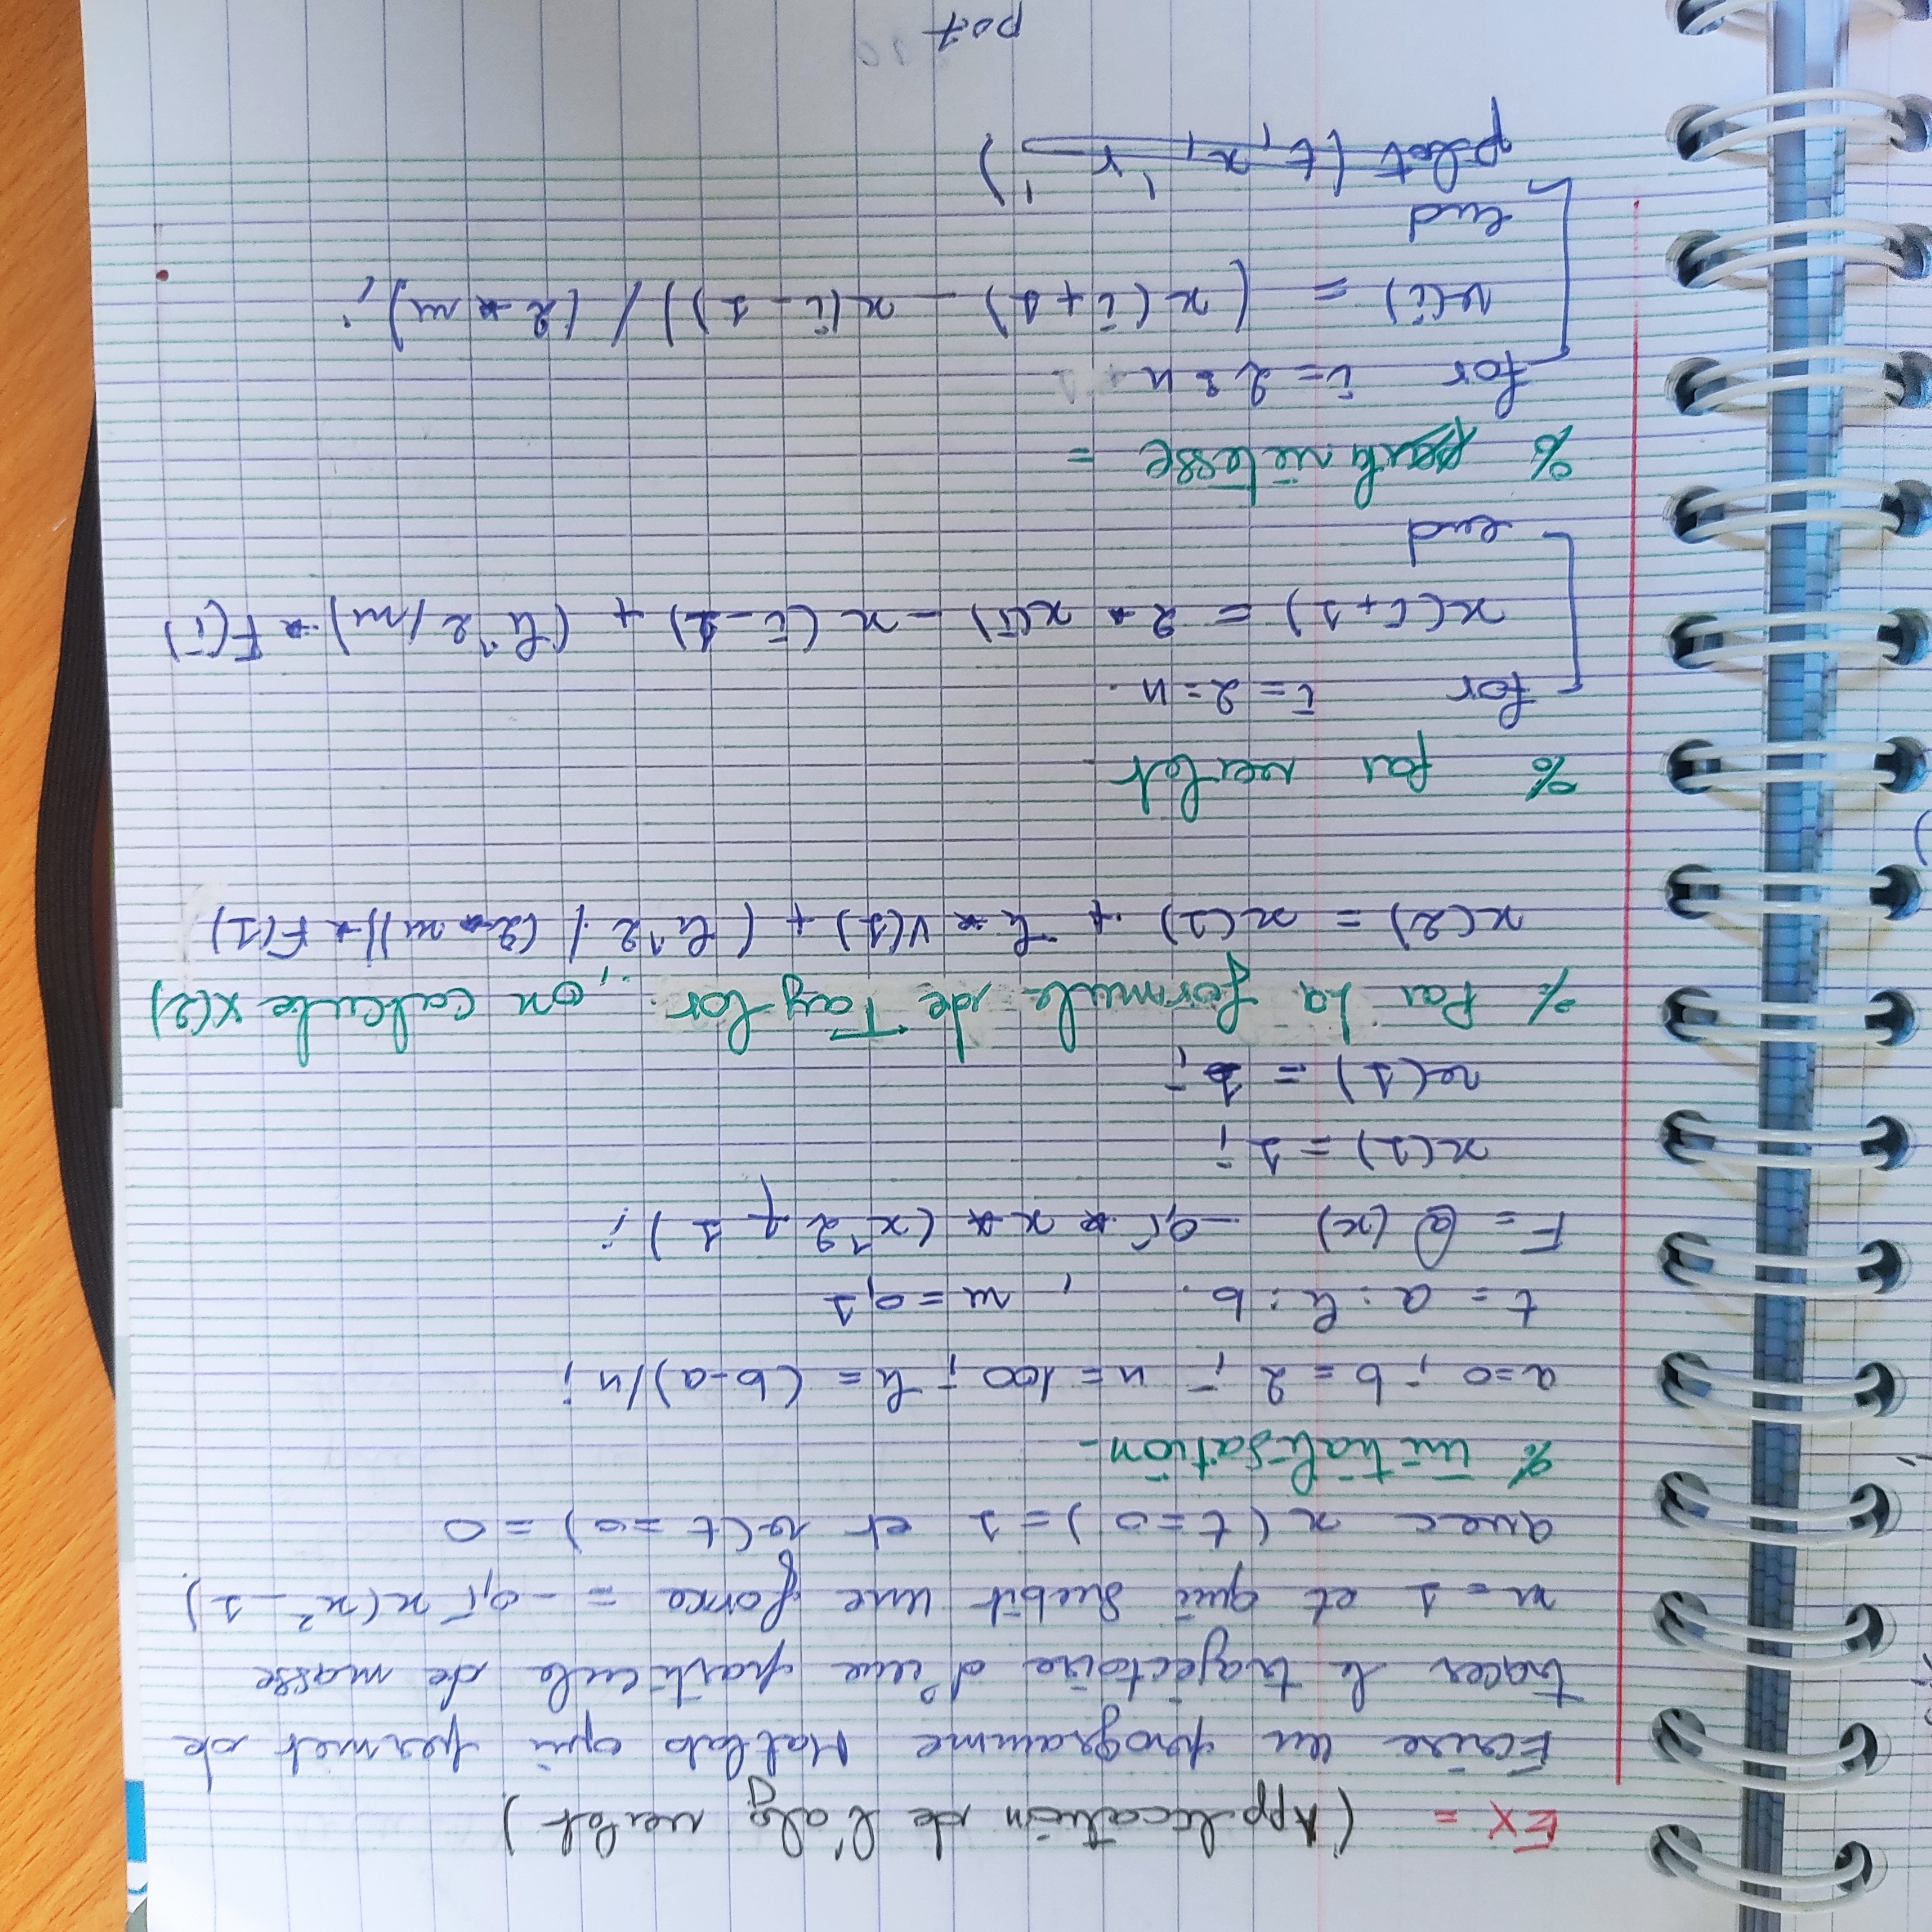 EX = (Application de l'alg verlet)
Ecrire un programme Matlab qui permet de
tracer le trajectoire d'une particule de masse
m = 1 et qui subit une force = -0,5 x(x² - 1)
avec x(t=0) = 1 et v(t=0) = 0
% initialisation -
a=0 ; b=2 ; n=100 ; h = (b-a)/n ;
t = a:h:b. , m = 0,1
F = @(x) -0,5 * x * (x^2 + 1) ;
x(1) = 1 ;
v(1) = ;
% Par La formule de Taylor , on calcule x(2)
x(2) = x(1) + h * V(1) + (h^2 / (2 * m)) * F(1)
% par verlet
for i = 2 : n
x(i+1) = 2 * x(i) - x(i-1) + (h^2/m) * F(i)
end
% la vitesse =
for i = 2 : n
v(i) = (x(i+1) - x(i-1)) / (2 * m) ;
end
plot (t, x, 'r ')